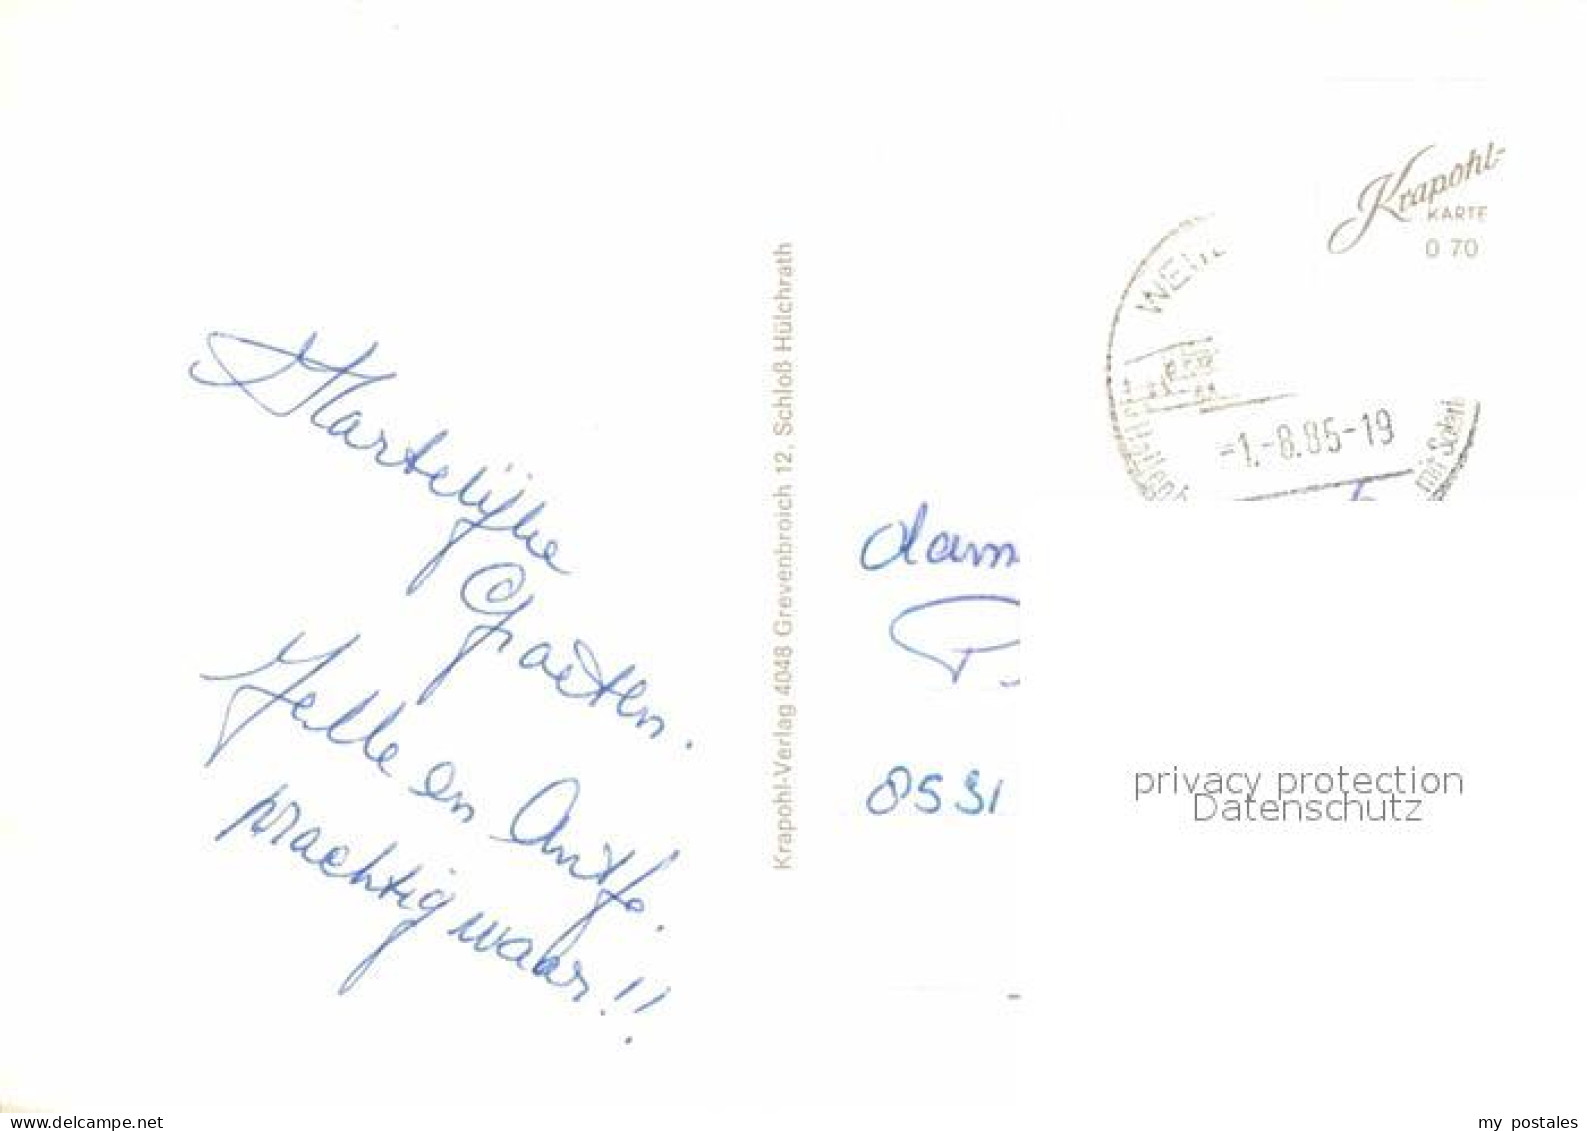 Hartelijke
Groeten.
Jelle en Antje.
prachtig waar!!
Krapohl-Verlag 4048 Grevenbroich 12, Schloß Hülchrath
Krapohl-
KARTE
0 70
-1.-8.85-19
mit
dam
8531
privacy protection
Datenschutz
www.delcampe.net
my_postales